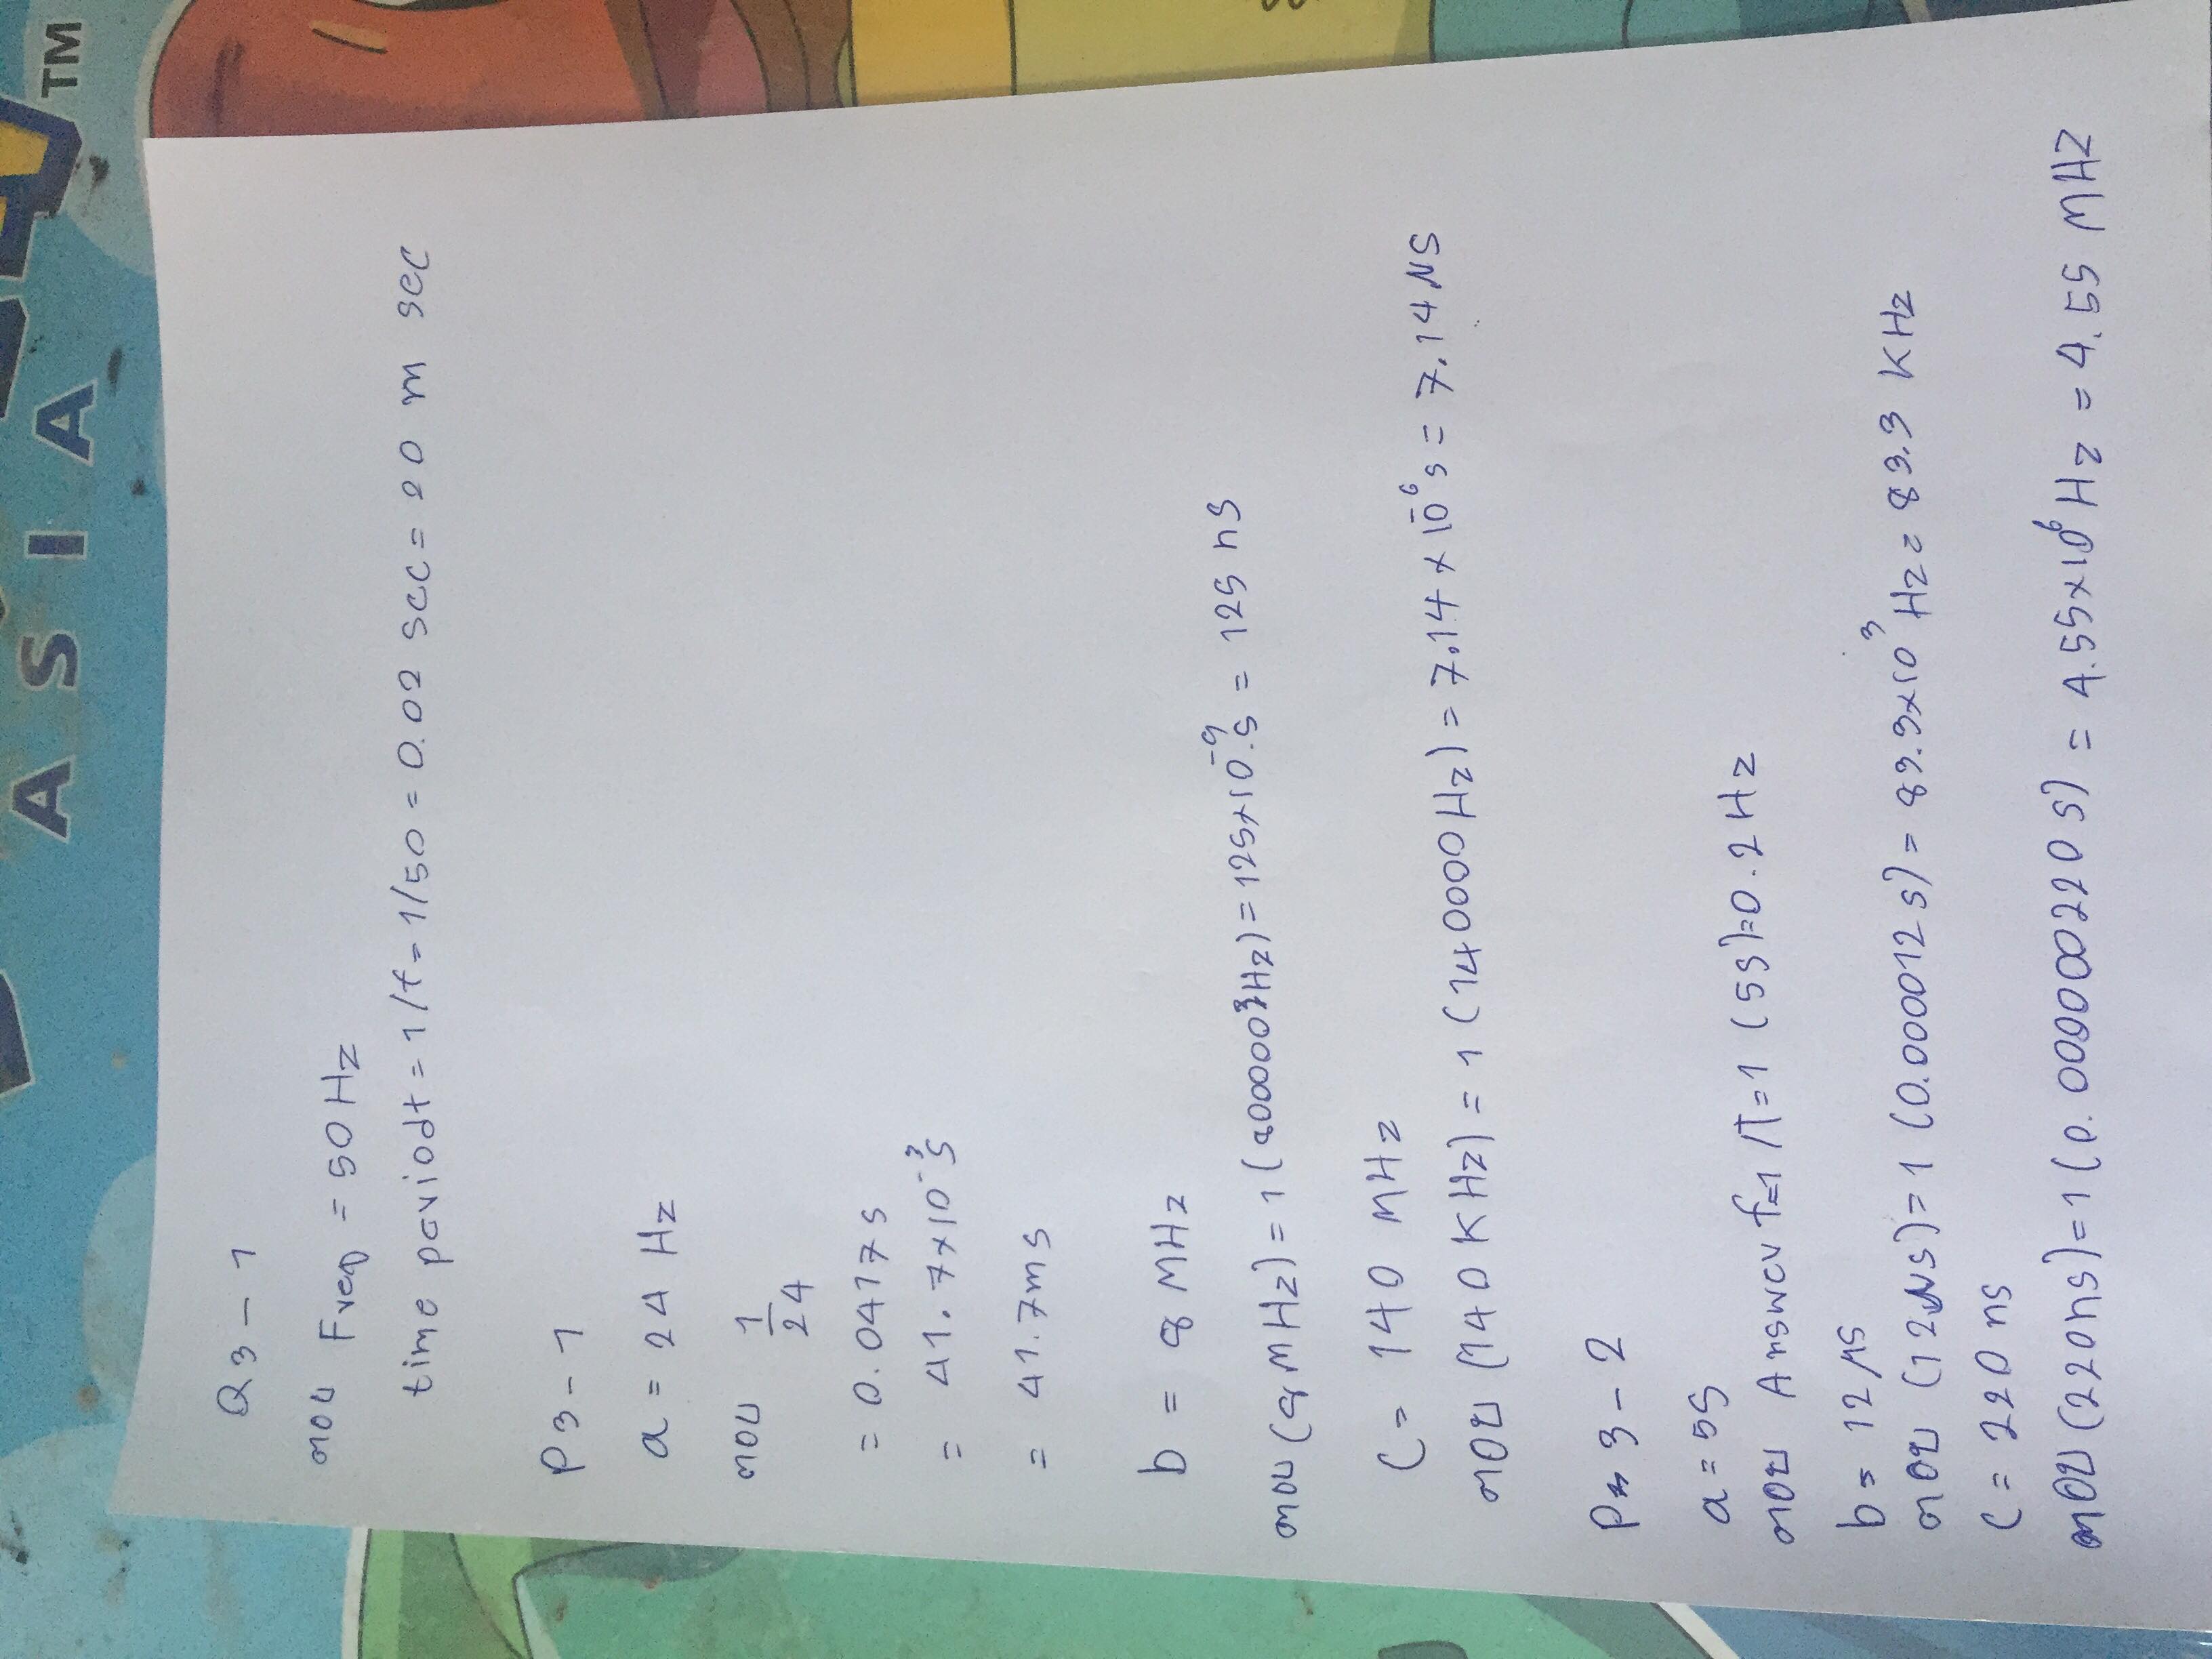 ASIA
TM
Q3-1
ตอบ Freq = 50 Hz
time periodt = 1/f = 1/50 = 0.02 sec = 20 m sec
P3-1
a = 24 Hz
ตอบ 1/24
= 0.0417s
= 41.7x10⁻³s
= 41.7ms
b = 8 MHz
ตอบ (8MHz) = 1 ( Hz) = 125x10⁻⁹s = 125 ns
C = 140 MHz
ตอบ (140 KHz) = 1 (140000Hz) = 7.14 x 10⁻⁶s = 7.14 µs
P 3-2
a = 5s
ตอบ Answer f=1/T=1 (5s)=0.2 Hz
b = 12µs
ตอบ (12µs)=1 (0.000012s) = 83.3x10³ Hz = 83.3 KHz
C = 220 ns
ตอบ (220ns)=1 (0.000000220s) = 4.55x10⁶ Hz = 4.55 MHz